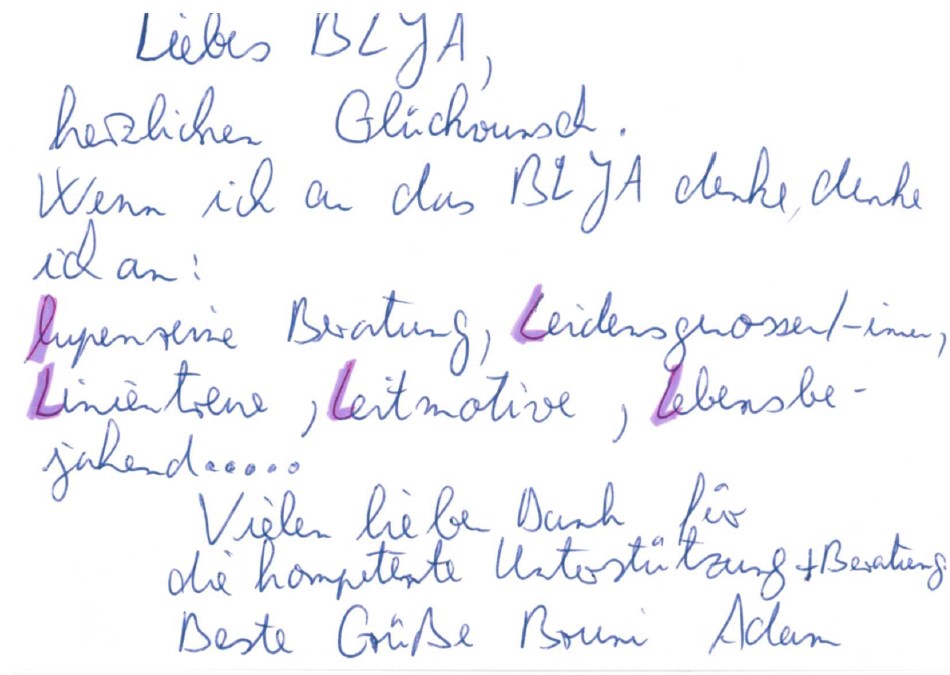 Liebes BLJA,
herzlichen Glückwunsch.
Wenn ich an das BLJA denke, denke
ich an:
lupenreine Beratung, Leidensgenossen/-innen,
Linientreue, Leitmotive, Lebensbe-
jahend.....
Vielen lieben Dank für
die kompetente Unterstützung + Beratung.
Beste Grüße Bruni Adam